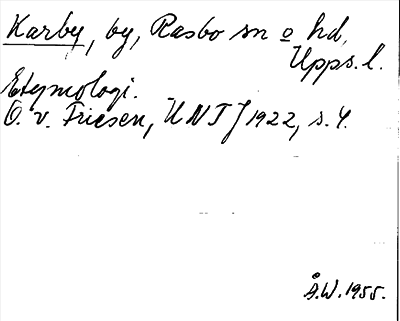 Karby, by, Rasbo sn o hd,
Upps. l.
Etymologi.
O. v. Friesen, UNT J 1922, s. 4.
Å.W. 1955.